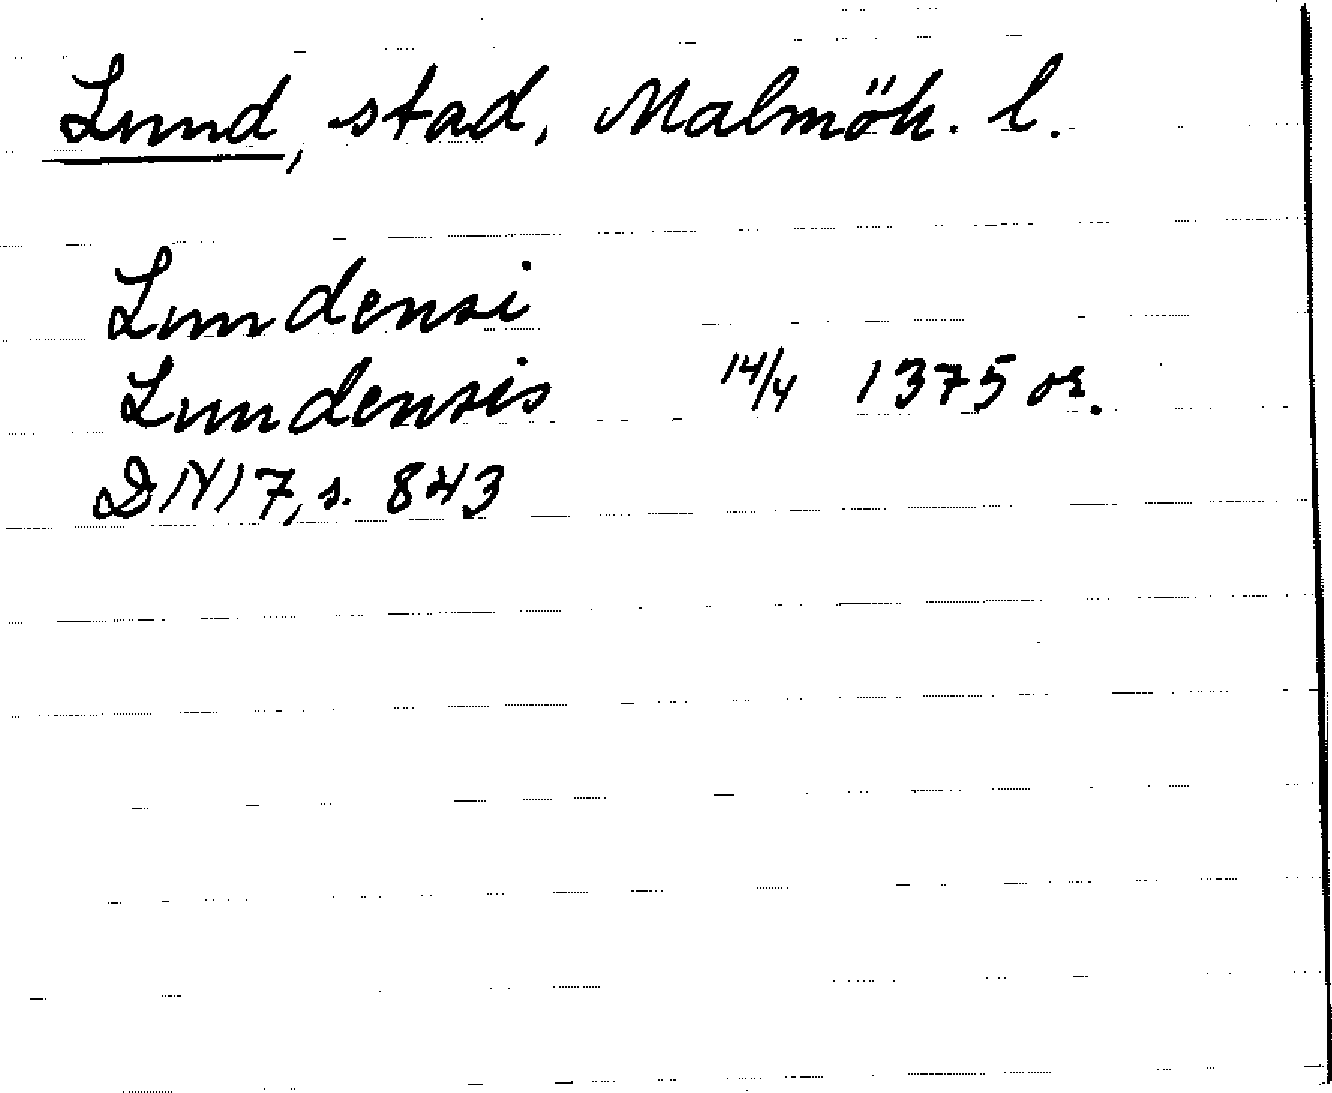 Lund, stad, Malmöh. l.
Lundensi
Lundensis 14/4 1375 or.
DN 17, s. 843